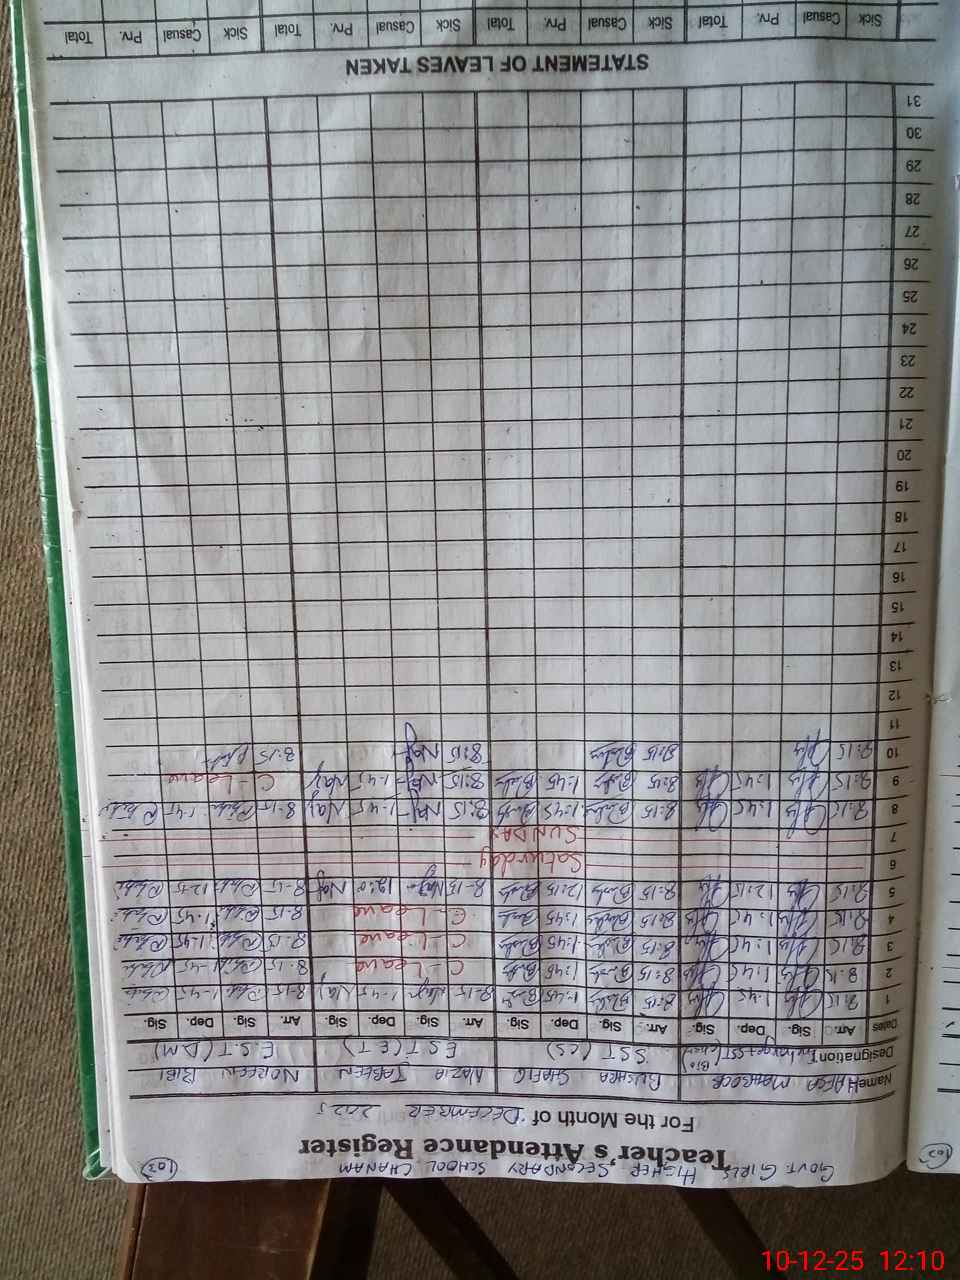 GOVT. GIRLS HIGHER SECONDARY SCHOOL CHANAM
103
Teacher's Attendance Register
For the Month of DECEMBER 2025
Name HAFSA MAHBOOB BUSHRA SHAFIQ NAZIA JABEEN NOREEN BIBI
Designation Incharge SST (Bio Chem) SST (CS) E.S.T (ET) E.S.T (DM)
Dates Arr. Sig. Dep. Sig. Arr. Sig. Dep. Sig. Arr. Sig. Dep. Sig. Arr. Sig. Dep. Sig.
1 8:15 1:45 8:15 1:45 8-15 1-45 8-15 1-45
2 8:15 1:45 8:15 1:45 C-Leave 8-15 1-45
3 8:15 1:45 8:15 1:45 C-Leave 8-15 1-45
4 8:15 1:45 8:15 1:45 C-Leave 8-15 1-45
5 8:15 12:15 8:15 12:15 8-15 8-15 12-15
6 Saturday
7 SUNDAY
8 8:15 1:45 8:15 1:45 8:15 1-45 8-15 1-45
9 8:15 1:45 8:15 1:45 8:15 1-45 C-Leave
10 8:15 8:15 8:15 8:15
11
12
13
14
15
16
17
18
19
20
21
22
23
24
25
26
27
28
29
30
31
STATEMENT OF LEAVES TAKEN
Sick Casual Prv. Total Sick Casual Prv. Total Sick Casual Prv. Total Sick Casual Prv. Total
103
10-12-25 12:10